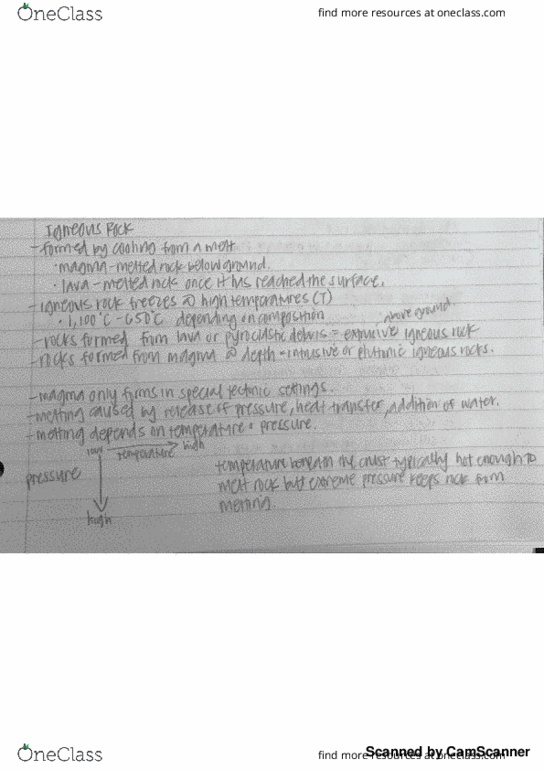 OneClass
find more resources at oneclass.com
Igneous Rock
- formed by cooling from a melt
· magma - melted rock below ground.
· lava - melted rock once it has reached the surface.
- igneous rock freezes @ high temperatures (T)
· 1,100°C - 650°C depending on composition
above ground
- rocks formed from lava or pyroclastic debris = extrusive igneous rock
- rocks formed from magma @ depth = intrusive or plutonic igneous rocks.
- magma only forms in special tectonic settings.
- melting caused by release of pressure, heat transfer, addition of water.
- melting depends on temperature + pressure.
low temperature high
pressure
high
temperature beneath the crust typically hot enough to
melt rock but extreme pressure keeps rock from
melting.
OneClass
find more resources at oneclass.com
Scanned by CamScanner